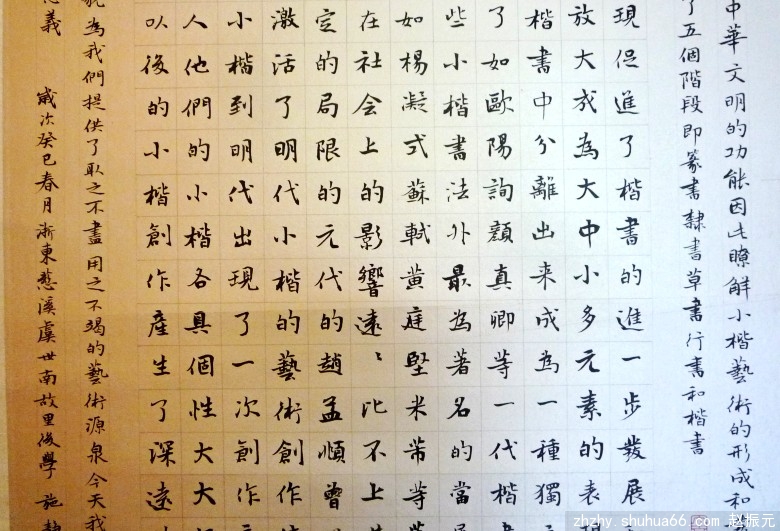 中華文明的功能因此瞭解小楷藝術的形成和
了五個階段即篆書隸書草書行書和楷書
現促進了楷書的進一步發展
放大成為大中小多元素的表
楷書中分離出来成為一種獨
了如歐陽詢顏真卿等一代楷
些小楷書法外最為著名的當
如楊凝式蘇軾黄庭堅米芾等
在社会上的影響遠〻比不上
定的局限的元代的趙孟順曾
激活了明代小楷的藝術創作
小楷到明代出現了一次創作
人他們的小楷各具個性大大
以後的小楷創作產生了深遠
能為我們提供了取之不盡用之不竭的藝術源泉今天我
義 歲次癸巳春月浙東慈溪虞世南故里後學施
zhzhy.shuhua66.com 赵振元